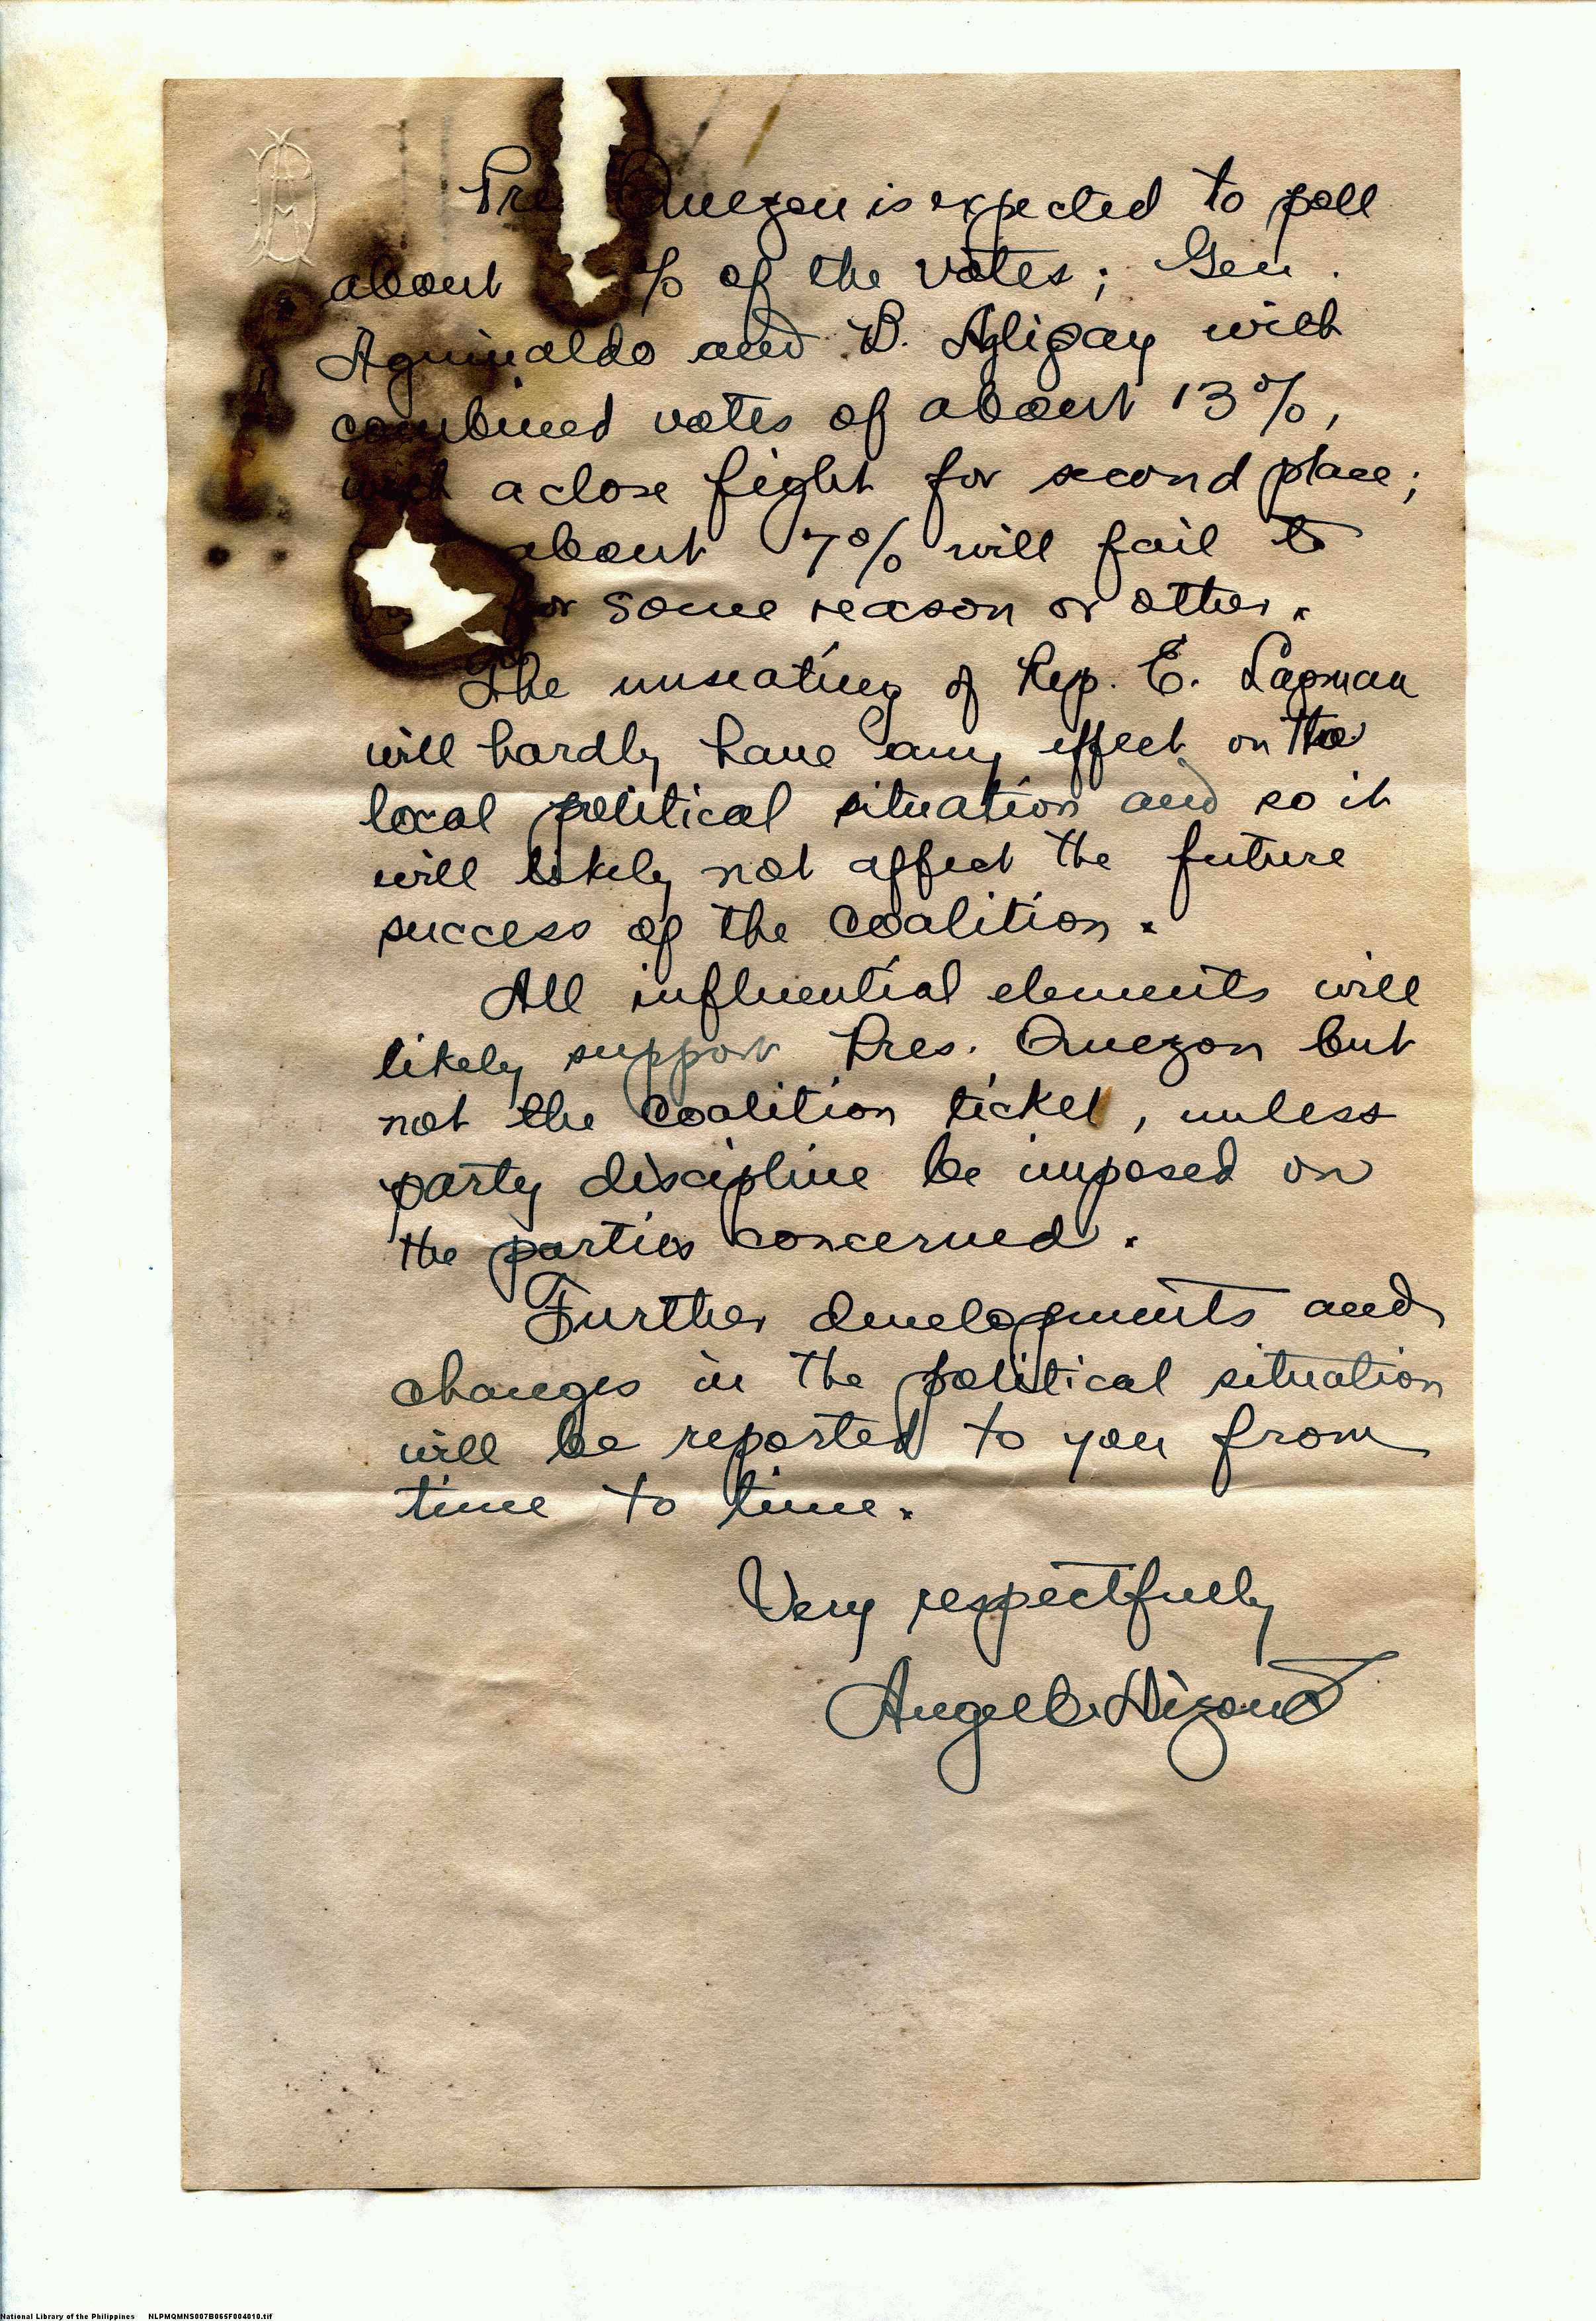 Pre Quezon is expected to poll
about % of the votes; Gen.
Aguinaldo and B. Aglipay with
combined votes of about 13%,
with a close fight for second place;
about 7% will fail to
for some reason or other.
The unseating of Rep. E. Lapman
will hardly have any effect on the
local political situation and so it
will likely not affect the future
success of the Coalition.
All influential elements will
likely support Pres. Quezon but
not the Coalition ticket, unless
party discipline be imposed on
the parties concerned.
Further developments and
changes in the political situation
will be reported to you from
time to time.
Very respectfully
Angel
National Library of the Philippines NLPMQMNS007B065F004010.tif